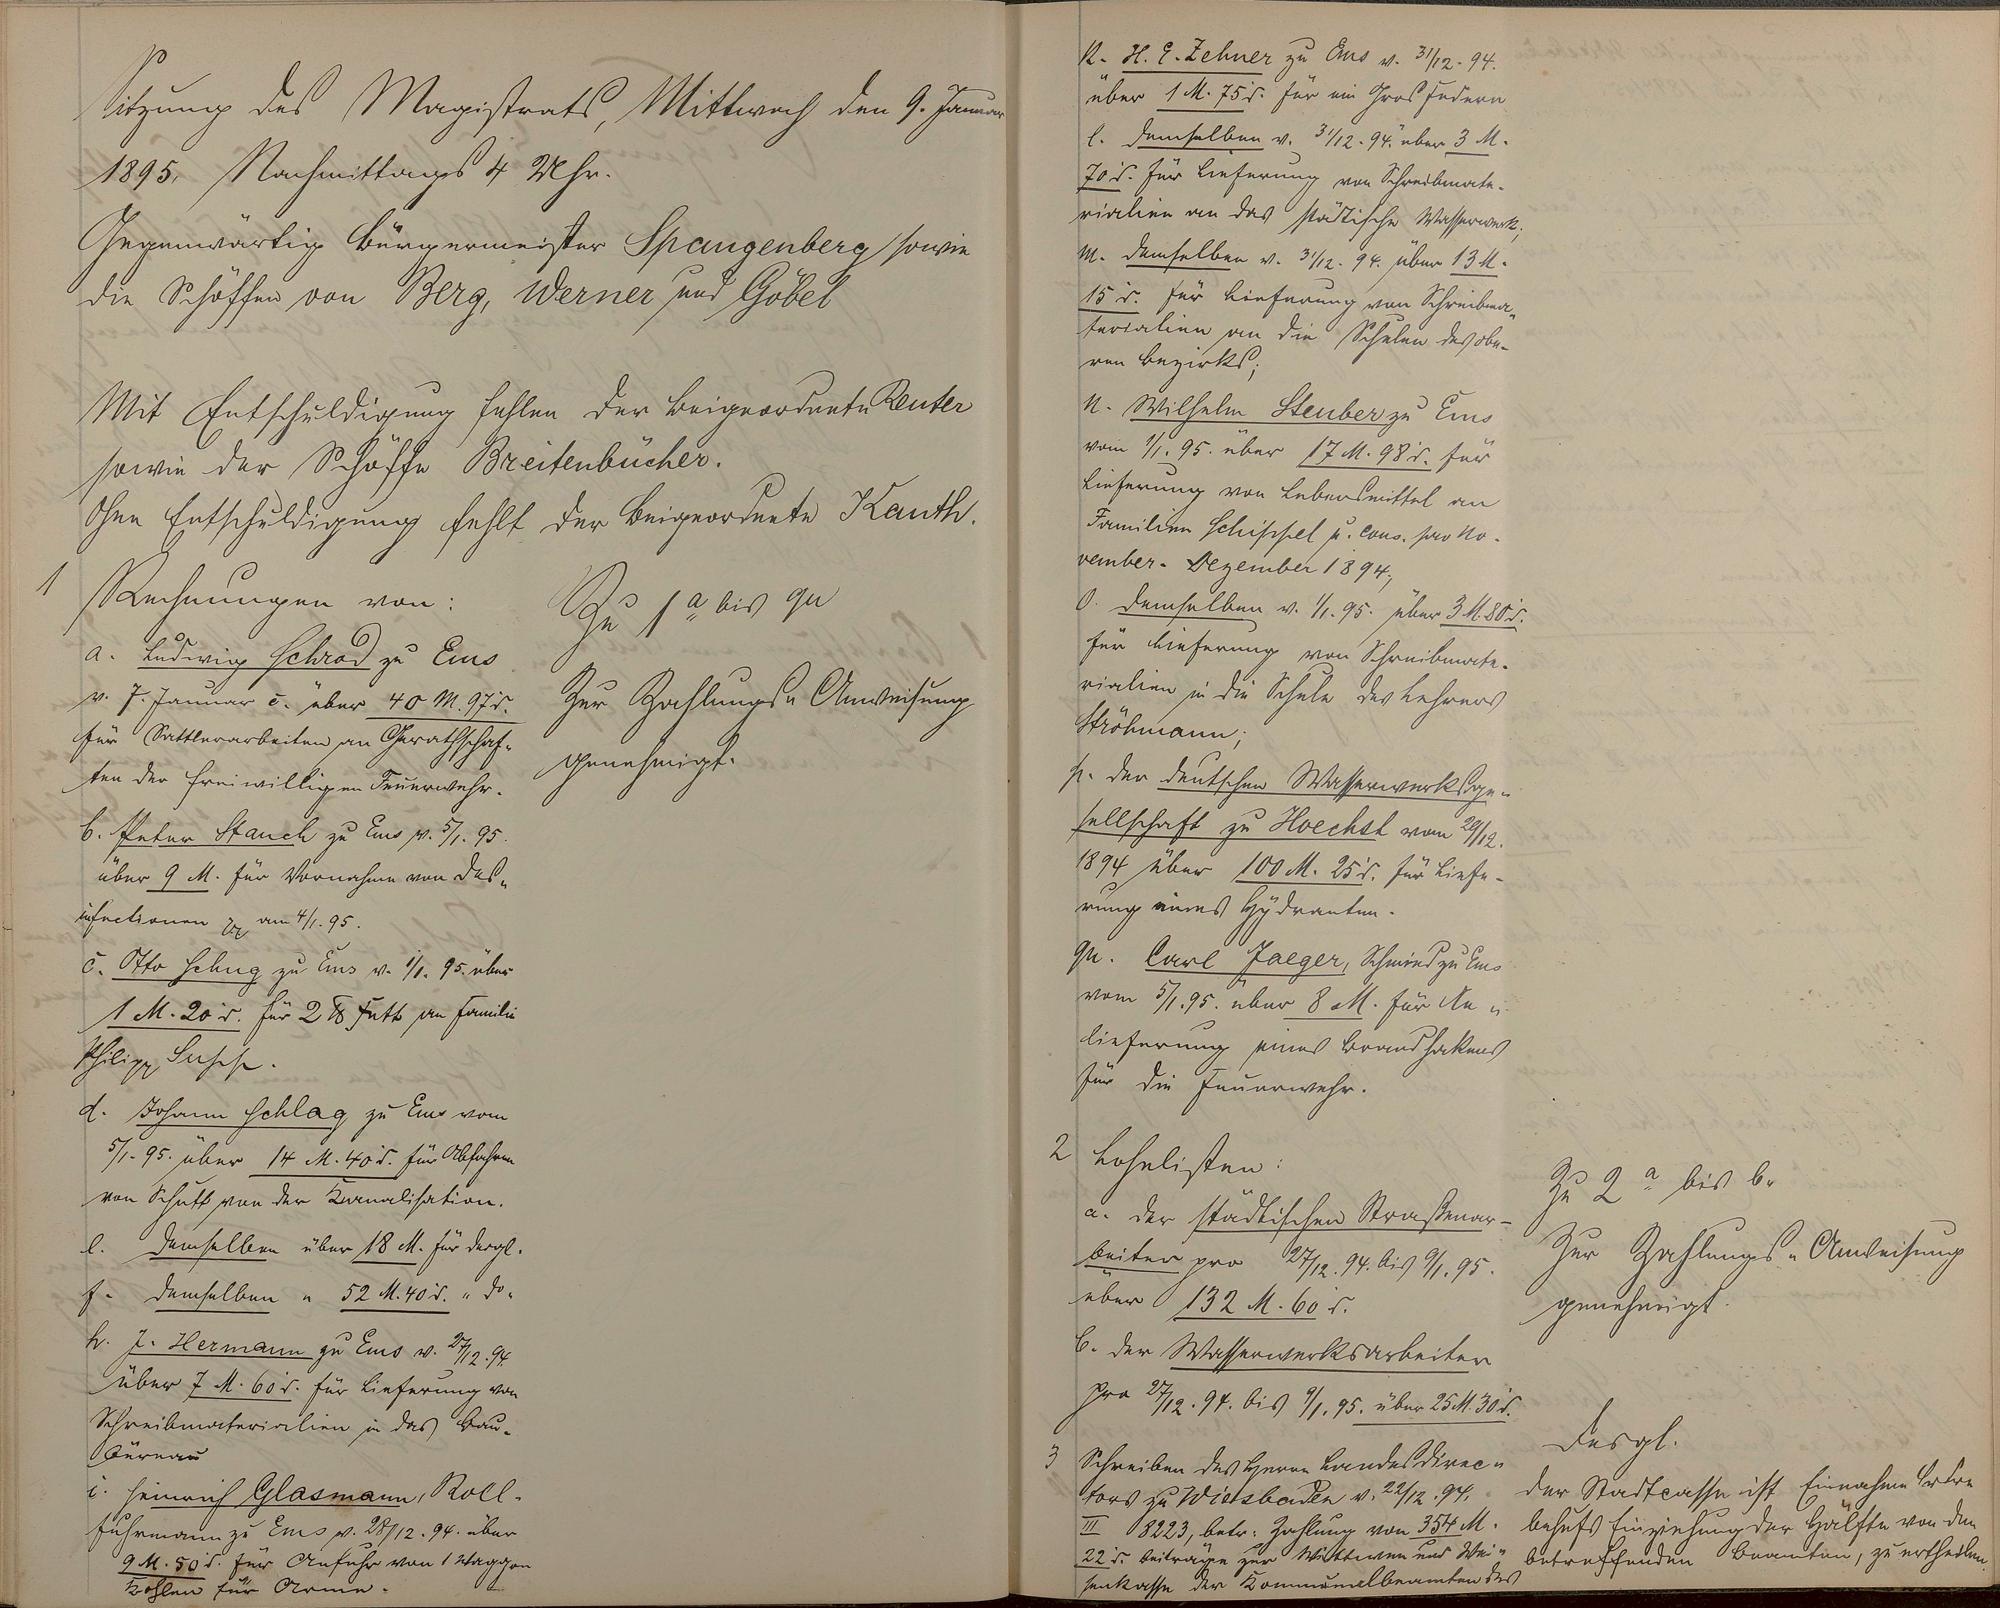 Sitzung des Magistrats, Mittwoch den 9. Januar
1895, Nachmittags 4 Uhr.
Gegenwärtig Bürgermeister Spangenberg sowie
die Schöffen von Berg, Werner und Göbel
Mit Entschuldigung fehlen der Beigeordnete Reuter
sowie der Schöffe Breitenbücher.
Ohne Entschuldigung fehlt der Beigeordnete Kauth.
1 Rechnungen von:
a. Ludwig Schrod zu Ems
v. 7. Januar c. über 40 M. 97 d.
für Sattlerarbeiten an Geräthschaf-
ten der freiwilligen Feuerwehr.
b. Peter Stauch zu Ems v. 5/1. 95.
über 9 M. für Vornahme von Des-
infectionen pp am 4/1. 95.
c. Otto Schug zu Ems v. 1/1. 95. über
1 M. 20 d. für 2 ℔ Fett an Familie
Philipp
d. Johann Schlag zu Ems vom
5/1. 95. über 14 M. 40 d. für Abfahren
von Schutt von der Kanalisation.
e. demselben über 18 M. für dergl.
f. demselben " 52 M. 40 d. " do.
h. J. Hermann zu Ems v. 27/12. 94
über 7 M. 60 d. für Lieferung von
Schreibmaterialien in das Bau-
büreau
i. Heinrich Glasmann, Roll-
fuhrmann zu Ems v. 28/12. 94. über
9 M. 50 d. für Anfuhr von 1 Waggon
Kohlen für Arme.
Zu 1 a bis qu
Zur Zahlungs-Anweisung
genehmigt.
K. H. E. Zehner zu Ems v. 31/12. 94.
über 1 M. 75 d. für ein Gros Federn
l. demselben v. 31/12. 94. über 3 M.
70 d. für Lieferung von Schreibmate-
rialien an das städtische Wasserwerk;
m. demselben v. 31/12. 94. über 13 M.
15 d. für Lieferung von Schreibma-
terialien an die Schulen des obe-
ren Bezirks;
n. Wilhelm Steuber zu Ems
vom 1/1. 95. über 17 M. 98 d. für
Lieferung von Lebensmittel an
Familien Schissel u. cons. pro No-
vember-Dezember 1894;
o. demselben v. 1/1. 95. über 3 M. 80 d.
für Lieferung von Schreibmate-
rialien in die Schule des Lehrers
Ströhmann;
p. der deutschen Wasserwerksge-
sellschaft zu Hoechst vom 29/12.
1894 über 100 M. 25 d. für Liefe-
rung eines Hydranten.
qu. Carl Jaeger, Schmied zu Ems
vom 5/1. 95. über 8 M. für An-
lieferung eines Brandhakens
für die Feuerwehr.
2 Lohnlisten:
a. der städtischen Straßenar-
beiter pro 27/12. 94. bis 9/1. 95.
über 132 M. 60 d.
b. der Wasserwerksarbeiter
pro 27/12. 94. bis 9/1. 95. über 25 M. 30 d.
Zu 2 a bis b.
Zur Zahlungs-Anweisung
genehmigt.
3 Schreiben des Herrn Landesdirec-
tors zu Wiesbaden v. 22/12. 94.
III 8223, betr. Zahlung von 354 M.
22 d. Beiträge zur Wittwen und Wai-
senkasse der Kommunalbeamten des
Desgl.
der Stadtcasse ist Einnahme Ordre
behufs Einziehung der Hälfte von den
betreffenden Beamten, zu ertheilen.